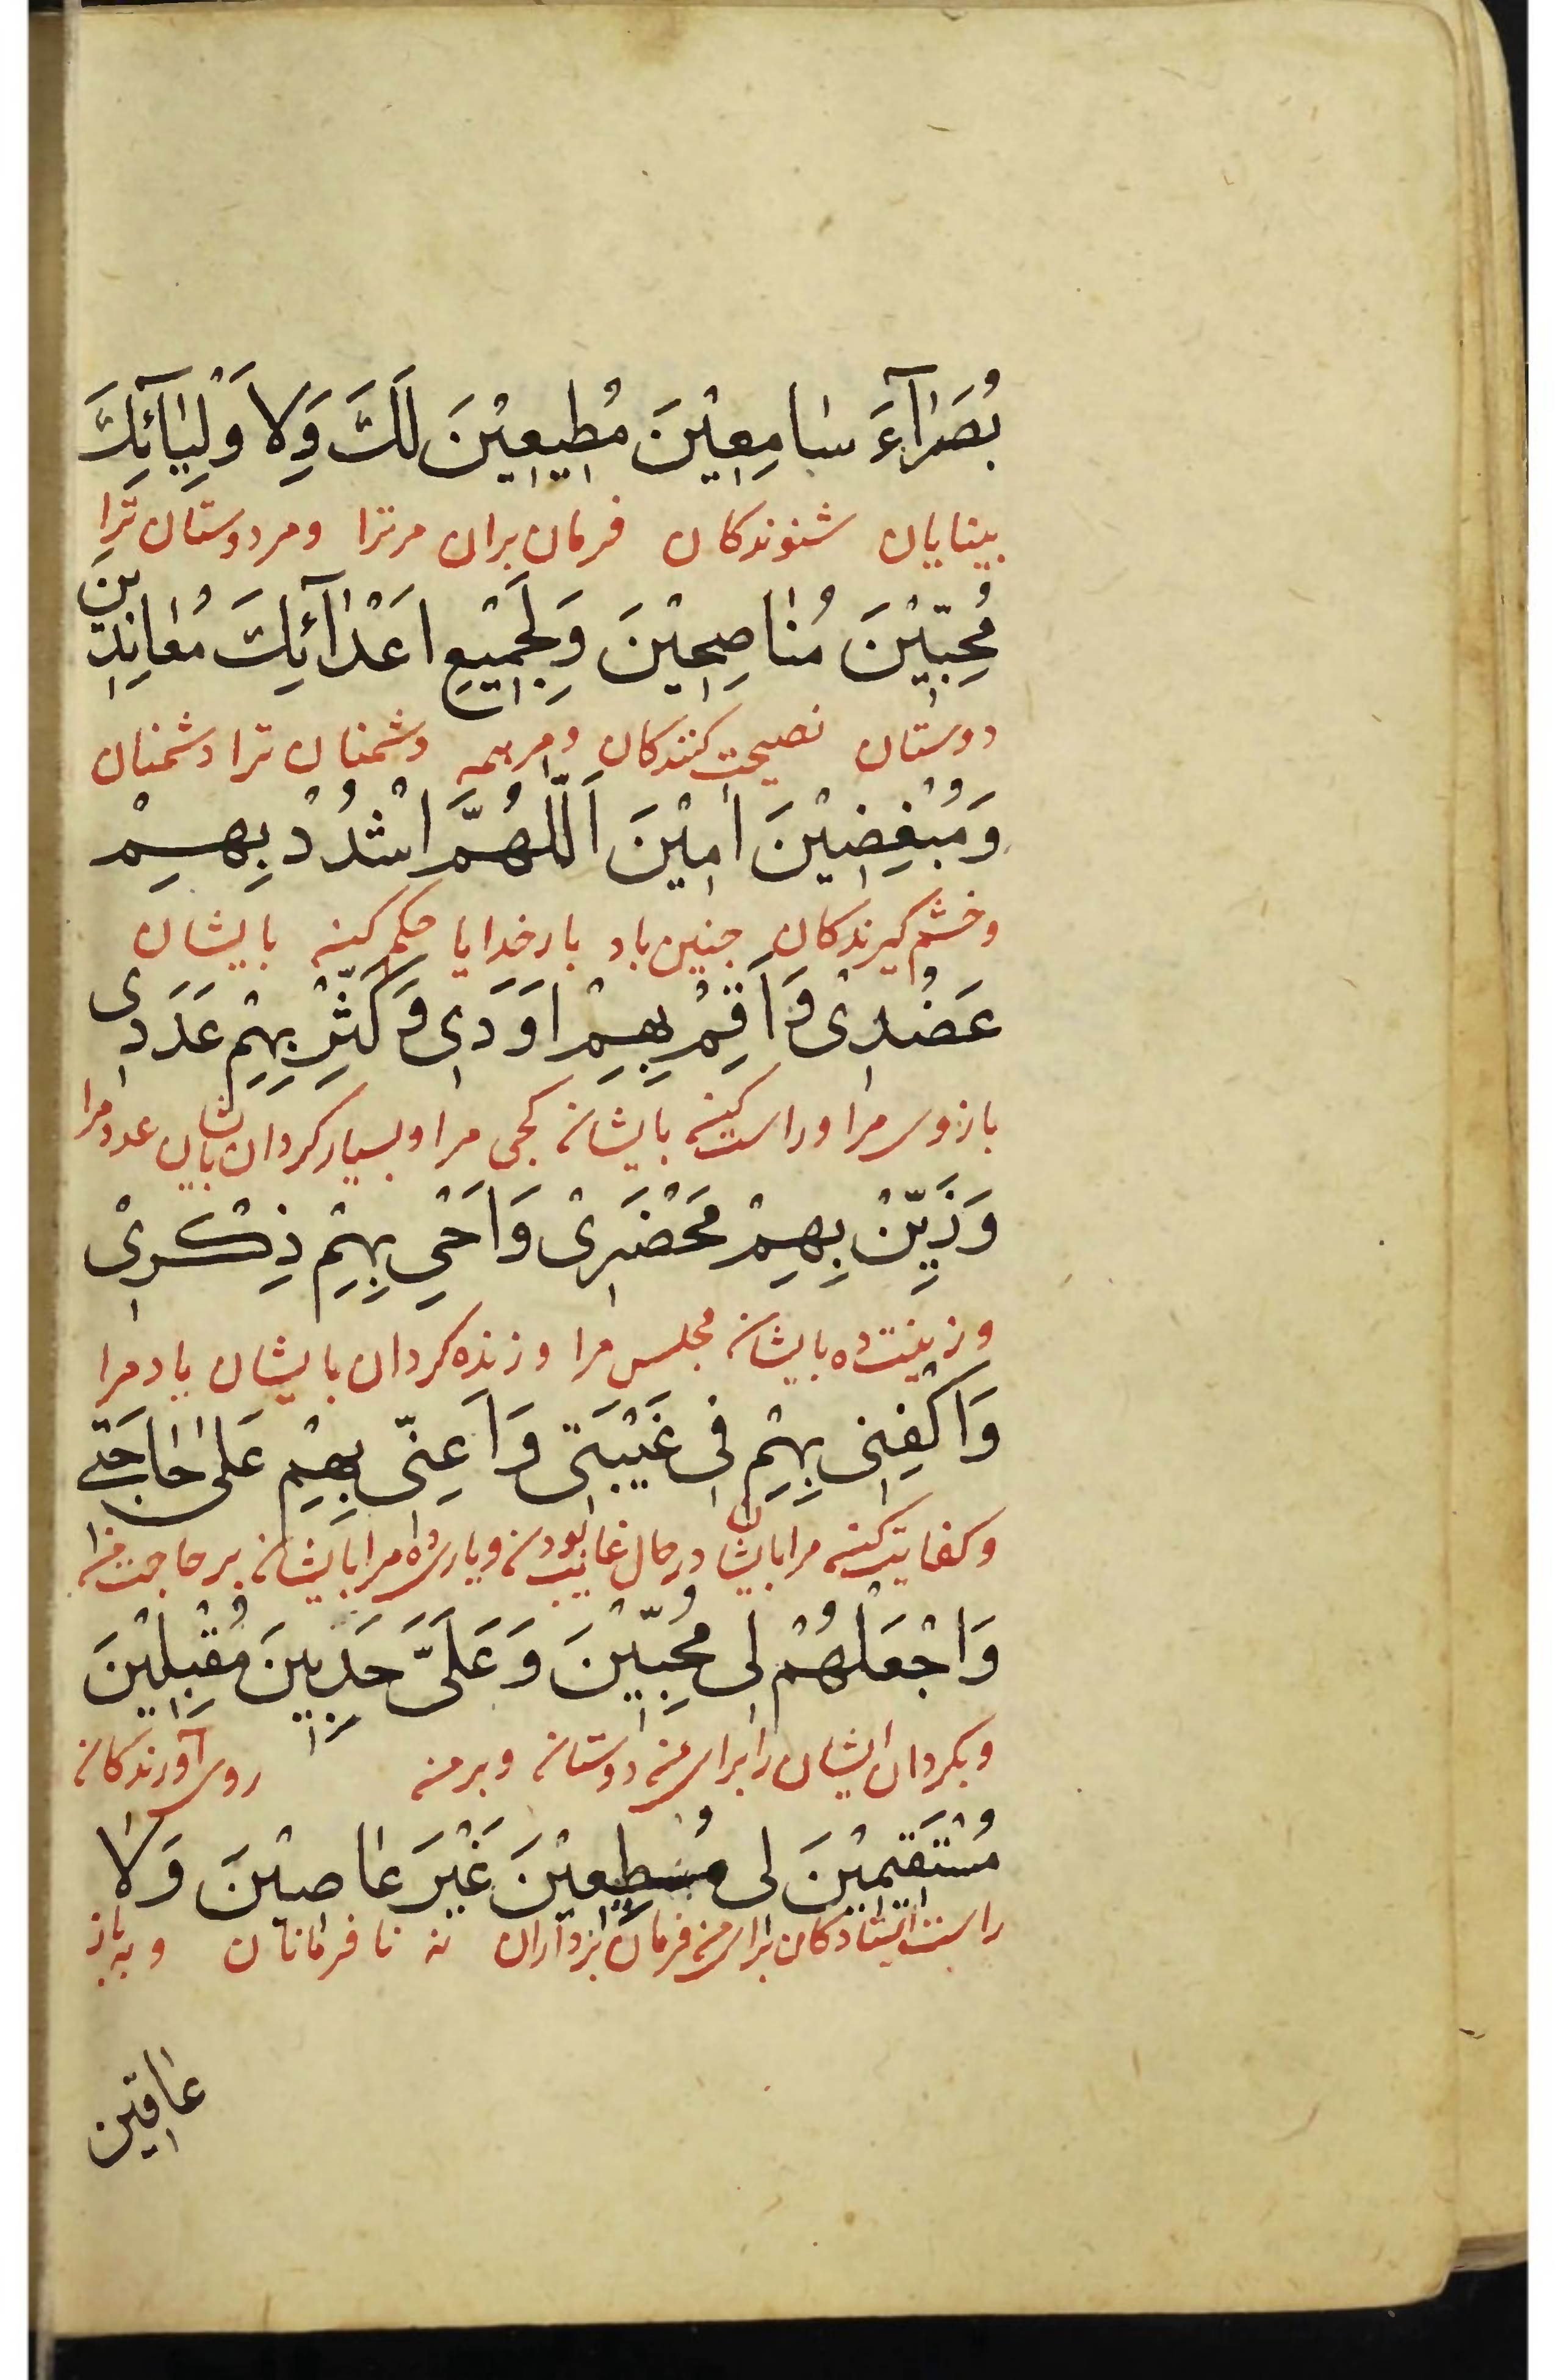 بُصَرٰآءَ سٰامِعِيْنَ مُطِيعِيْنَ لَكَ وَلِاَوْلِيٰآئِكَ
بینایان شنوندکان فرمان بران مرترا ومردوستان ترا
مُحِبّيْنَ مُنٰاصِحِيْنَ وَلِجَمِيْعِ اَعْدٰآئِكَ مُعٰانِدِينَ
دوستان نصیحت کنندکان ومرهمه دشمنان ترا دشمنان
وَمُبْغِضِيْنَ اٰمِيْنَ اَللّٰهُمَّ اشْدُدْ بِهِمْ
وخشم کیرندکان جنین باد بارخدایا حکم کنے بایشان
عَضُدِىْ وَاَقِمْ بِهِمْ اَوَدِى وَكَثِّرْ بِهِمْ عَدَدِى
بازوی مرا وراست کنے بایشان کجی مرا وبسیار کردان بایشان عدد مرا
وَزَيِّنْ بِهِمْ مَحْضَرِىْ وَاَحْىِ بِهِمْ ذِكْرِىْ
وزینت ده بایشان مجلس مرا وزنده کردان بایشان یاد مرا
وَاكْفِنِى بِهِمْ فِى غَيْبَتِى وَاَعِنّى بِهِمْ عَلىٰ حٰاجَتٖى
وکفایت کنے مرا بایشان درحال غایب بودن ویاری ده مرا بایشان بر حاجت من
وَاجْعَلْهُمْ لِى مُحِبّيْنَ وَعَلَىَّ حَدِبِينَ مُقْبِلِيْنَ
وبکردان ایشان را برای من دوستان وبر من روی آورندکان
مُسْتَقِيمِيْنَ لِى مُطِيعِيْنَ غَيْرَ عٰاصِيْنَ وَلاٰ
راست ایستادکان برای من فرمان بردآران نه نافرمانان ونه
عٰاقّين